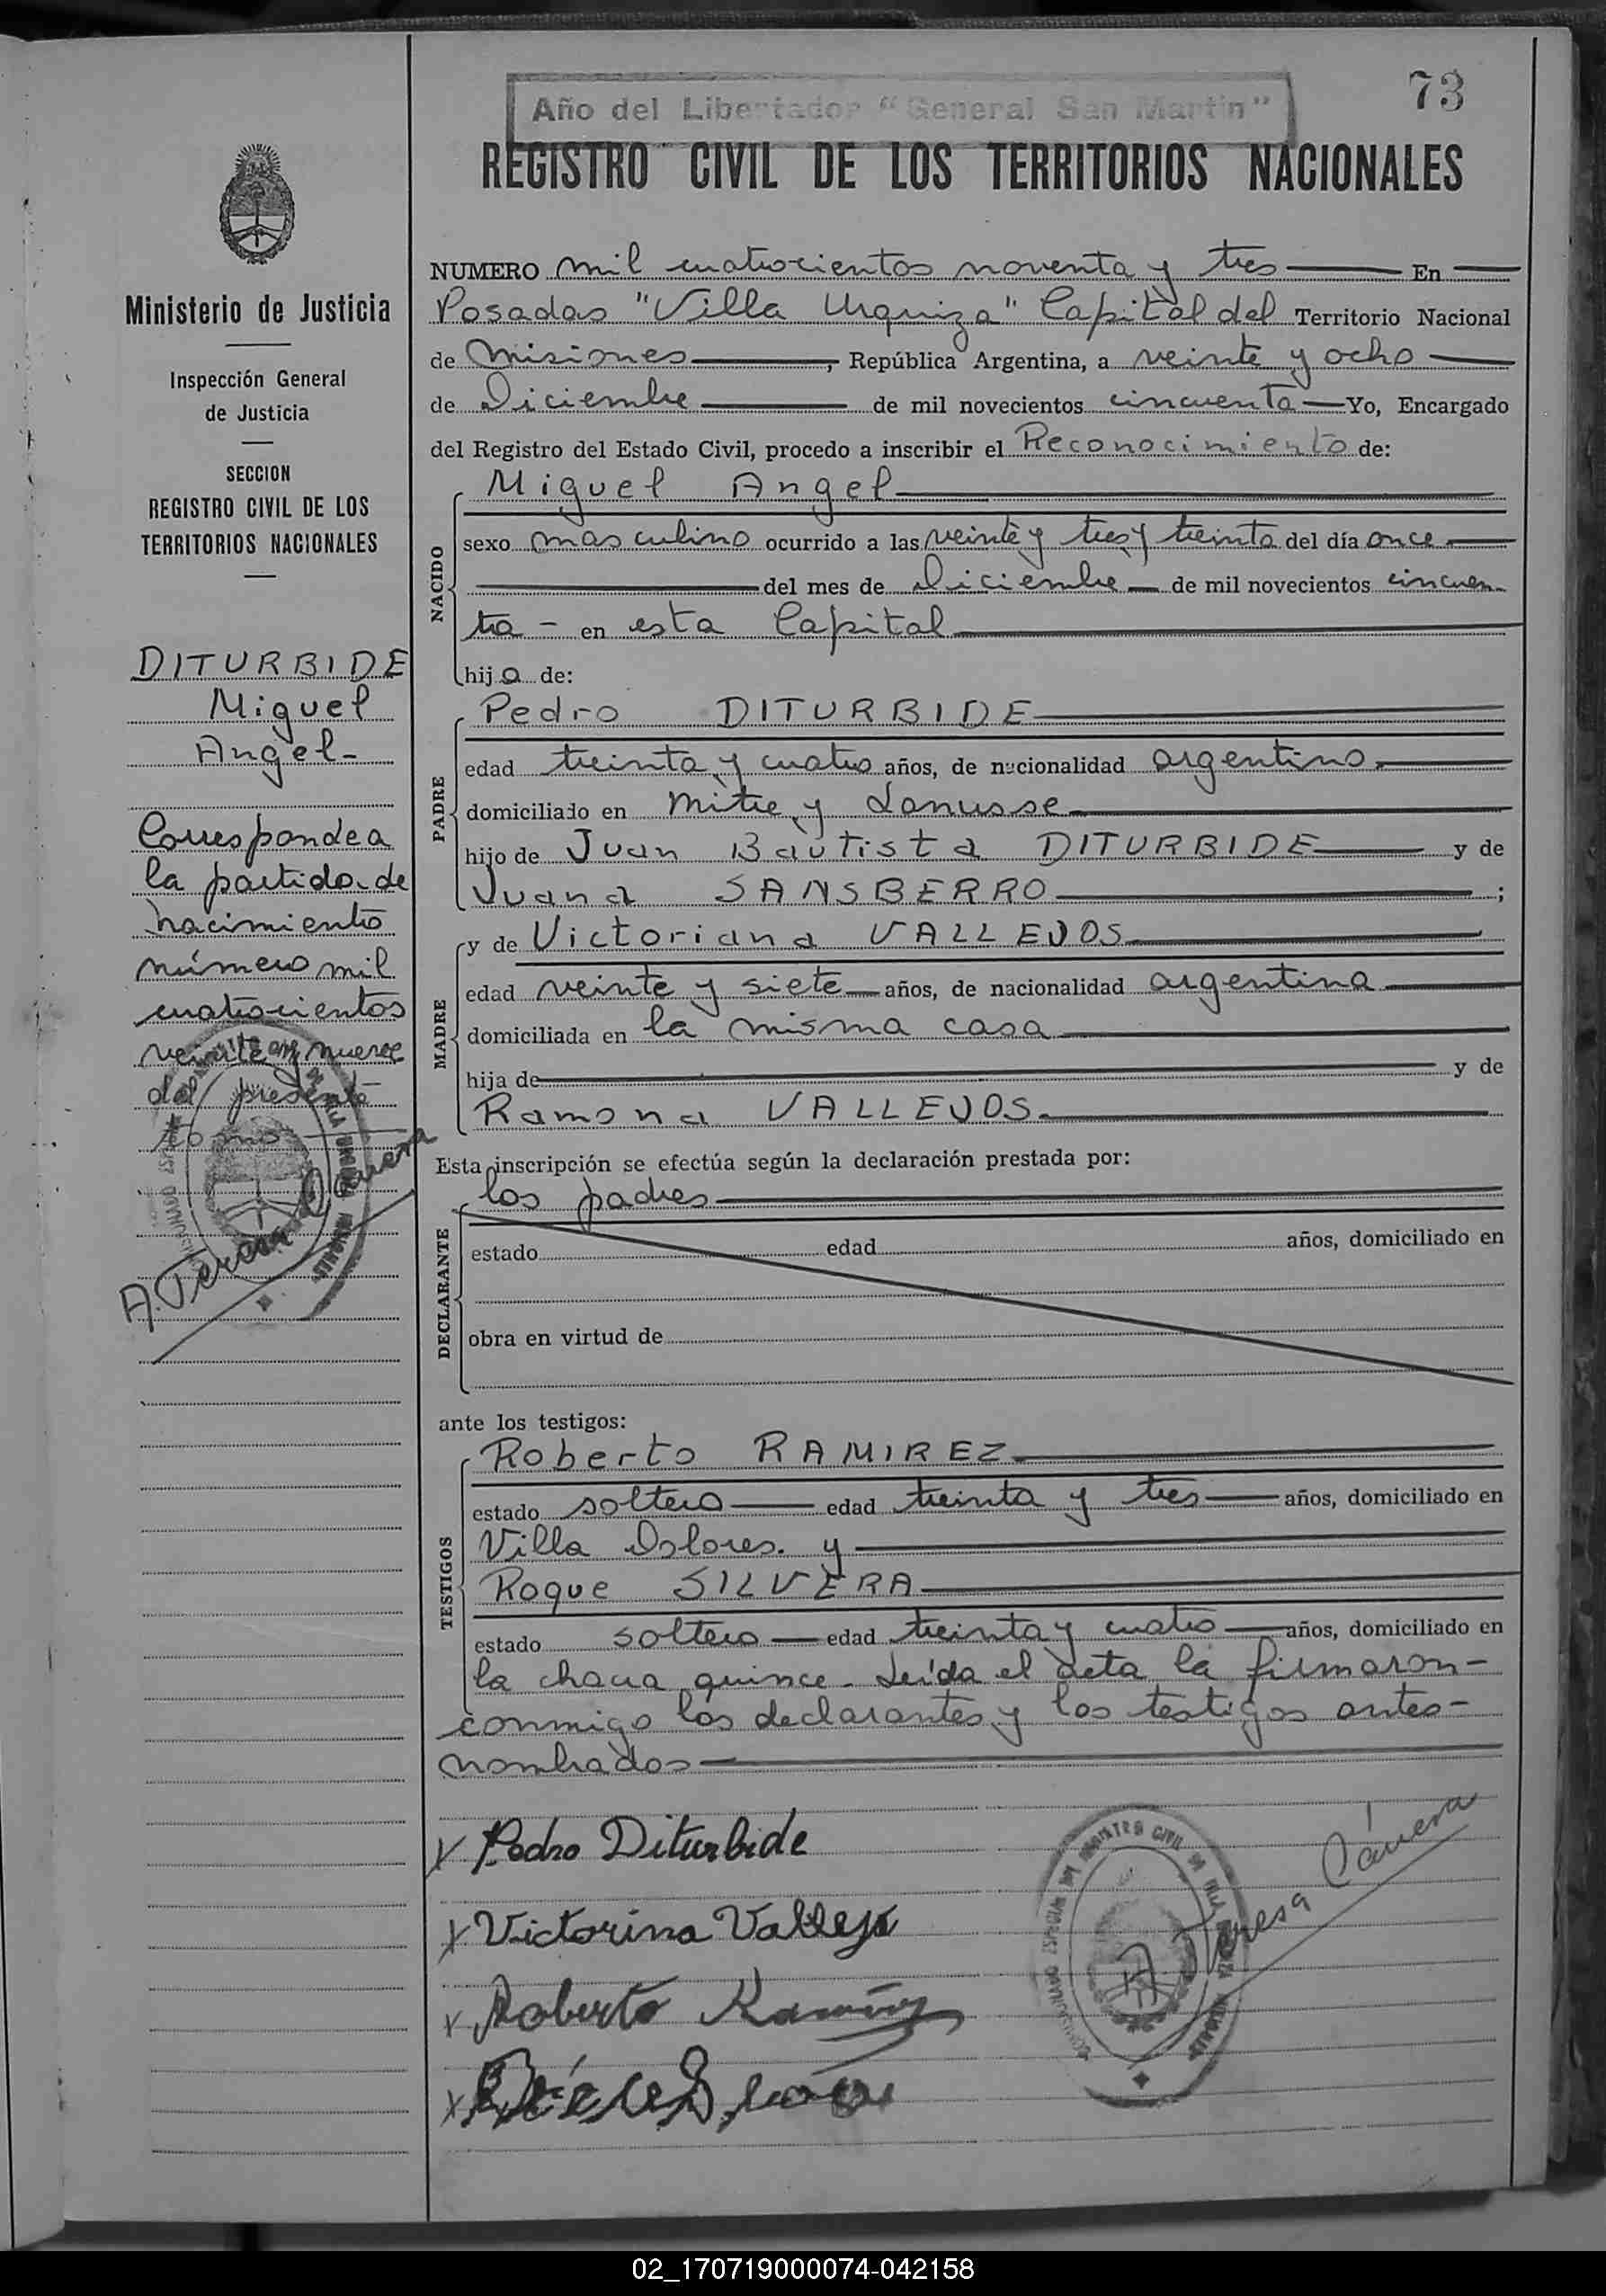 73
Año del Libertador "General San Martín"
REGISTRO CIVIL DE LOS TERRITORIOS NACIONALES
Ministerio de Justicia
Inspección General
de Justicia
SECCION
REGISTRO CIVIL DE LOS
TERRITORIOS NACIONALES
DITURBIDE
Miguel
Angel-
Corresponde a
la partida de
nacimiento
número mil
cuatrocientos
veinte y nueve
del presente
tomo
A. Teresa
NUMERO mil cuatrocientos noventa y tres En
Posadas "Villa Urquiza" Capital del Territorio Nacional
de Misiones, República Argentina, a veinte y ocho
de Diciembre de mil novecientos cincuenta Yo, Encargado
del Registro del Estado Civil, procedo a inscribir el Reconocimiento de:
NACIDO
Miguel Angel
sexo masculino ocurrido a las veinte y tres y treinta del día once
del mes de Diciembre de mil novecientos cincuen
ta - en esta Capital
hijo de:
PADRE
Pedro DITURBIDE
edad treinta y cuatro años, de nacionalidad argentino
domiciliado en Mitre y Lanusse
hijo de Juan Bautista DITURBIDE y de
Juana SANSBERRO ;
MADRE
y de Victoriana VALLEJOS
edad veinte y siete años, de nacionalidad argentina
domiciliada en la misma casa
hija de y de
Ramona VALLEJOS
Esta inscripción se efectúa según la declaración prestada por:
DECLARANTE
los padres
estado edad años, domiciliado en
obra en virtud de
ante los testigos:
TESTIGOS
Roberto RAMIREZ
estado soltero edad treinta y tres años, domiciliado en
Villa Dolores. y
Roque SILVERA
estado soltero edad treinta y cuatro años, domiciliado en
la chacra quince. Leída el acta la firmaron-
conmigo los declarantes y los testigos antes-
nombrados
x Pedro Diturbide
x Victorina Vallejo
x Roberto Ramírez
A Teresa
02_170719000074-042158